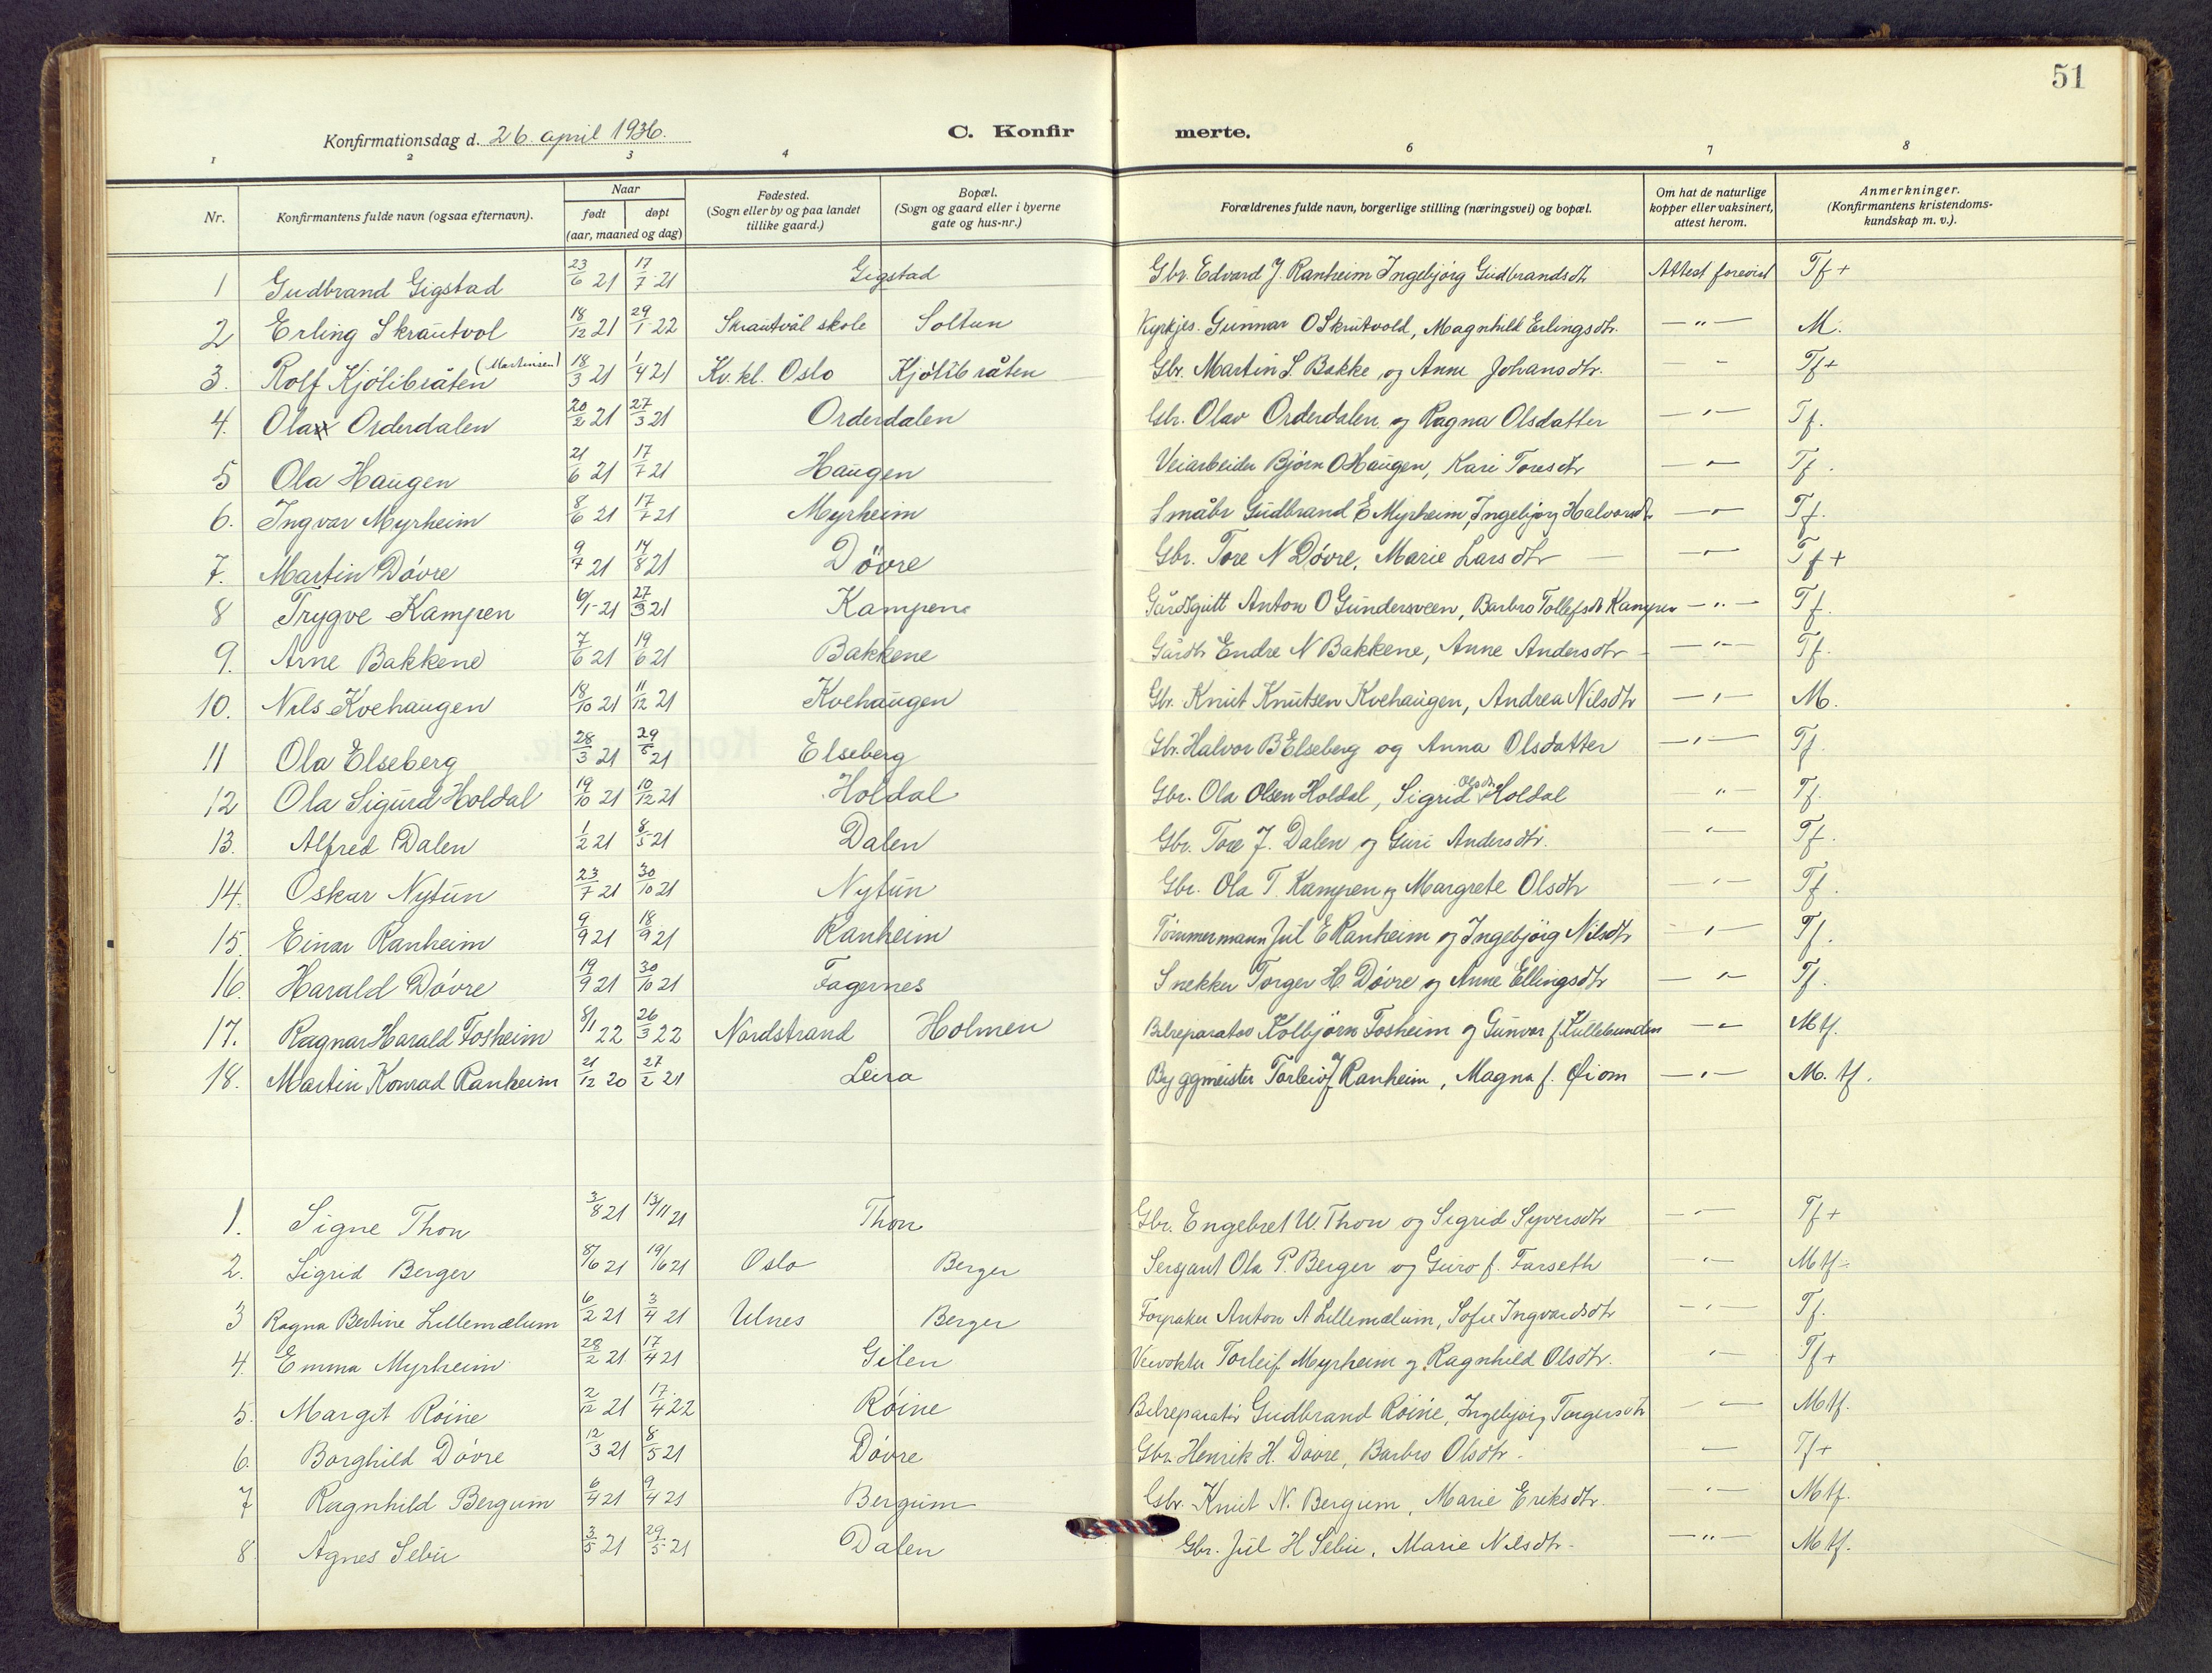 51
Konfirmationsdag d. 26 april 1936. C. Konfir merte.
1 2 3 4 6 7 8
Nr. Konfirmantens fulde navn (ogsaa efternavn). Naar født døpt (aar, maaned og dag) Fødested. (Sogn eller by og paa landet tillike gaard.) Bopæl. (Sogn og gaard eller i byerne gate og hus-nr.) Forældrenes fulde navn, borgerlige stilling (næringsvei) og bopæl. Om hat de naturlige kopper eller vaksinert, attest herom. Anmerkninger. (Konfirmantens kristendoms-kundskap m. v.).
1 Gudbrand Gigstad 23/6 21 17/7 21 Gigstad Gbr. Edvard J. Ranheim Ingebjörg Gudbrandsdtr Attest forevist Tf+
2 Erling Skrautvol 18/12 21 29/1 22 Skrautvål skole Soltun Kyrkjes. Gunnar O Skrutvold, Magnhild Erlingsdtr. —"— M.
3. Rolf Kjölibråten (Martinsen) 18/3 21 1/4 21 Kv. kl. Oslo Kjölibråten Gbr. Martin S. Bakke og Anne Johansdtr. — " Tf+
4. Ola Orderdalen 20/2 21 27/3 21 Orderdalen Gbr. Olav Orderdalen og Ragna Olsdatter —"— Tf.
5 Ola Haugen 21/6 21 17/7 21 Haugen Veiarbeider Björn O Haugen, Kari Toresdtr —"— Tf.
6. Ingvar Myrheim 8/6 21 17/7 21 Myrheim Småbr Gudbrand E Myrheim, Ingebjörg Halvorsdtr —"— Tf.
7. Martin Dövre 9/7 21 14/8 21 Dövre Gbr. Tore N Dövre, Marie Larsdtr —"— Tf+
8 Trygve Kampen 6/1-21 27/3 21 Kampen Gårdsgutt Anton O Gundersveen, Barbro Tollefsdtr Kampen —"— Tf.
9. Arne Bakkene 7/6 21 19/6 21 Bakkene Gårdbr Endre N Bakkene, Anne Andersdtr —"— Tf.
10. Nils Kvehaugen 18/10 21 11/12 21 Kvehaugen Gbr. Knut Knutsen Kvehaugen, Andrea Nilsdtr —"— M.
11 Ola Elseberg 28/3 21 29/5 21 Elseberg Gbr. Halvor B Elseberg og Anna Olsdatter —"— Tf.
12 Ola Sigurd Holdal 19/10 21 10/12 21 Holdal Gbr. Ola Olsen Holdal, Sigrid Olsdtr Holdal " Tf.
13. Alfred Dalen 1/2 21 8/5 21 Dalen Gbr. Tore J. Dalen og Guri Andersdtr. —"— Tf.
14. Oskar Nytun 23/7 21 30/10 21 Nytun Gbr. Ola T. Kampen og Margrete Olsdtr —"— Tf.
15. Einar Ranheim 9/9 21 18/9 21 Ranheim Tömmermann Jul E Ranheim og Ingebjörg Nilsdtr —"— Tf.
16. Harald Dövre 19/9 21 30/10 21 Fagernes Snekker Torger H Dövre og Anne Ellingsdtr —"— Tf.
17. Ragnar Harald Fosheim 8/1 22 26/3 22 Nordstrand Holmen Bilreparatør Kolbjörn Fosheim og Gunvor f. —"— Mtf.
18. Martin Konrad Ranheim 21/12 20 27/2 21 Leira Byggmeister Torleiv J Ranheim, Magna f. Øiom —"— M.tf.
1. Signe Thon 3/8 21 13/11 21 Thon Gbr. Engebret U. Thon og Sigrid Syversdtr —"— Tf+
2. Sigrid Berger 8/6 21 19/6 21 Oslo Berger Sersjant Ola P. Berger og Guro f. Farseth "— Mtf
3 Ragna Bertine Lillemælum 6/2 21 3/4 21 Ulnes Berger Forpakter Anton A Lillemælum, Sofie Ingvardsdtr —"— Tf.
4. Emma Myrheim 28/2 21 17/4 21 Gilen Veivokter Torleif Myrheim og Ragnhild Olsdtr. "— Tf+
5. Margit Röine 2/12 21 17/4 22 Röine Bilreparatör Gudbrand Röine, Ingebjörg Torgersdtr —"— Mtf.
6. Borghild Dövre 12/3 21 8/5 21 Dövre Gbr. Henrik H. Dövre, Barbro Olsdtr. — Tf+
7 Ragnhild Bergum 6/4 21 9/4 21 Bergum Gbr. Knut N. Bergum, Marie Eriksdtr. —"— Mtf.
8. Agnes Sebu 3/5 21 29/5 21 Dalen Gbr. Jul H Sebu, Marie Nilsdtr. —"— Mtf.